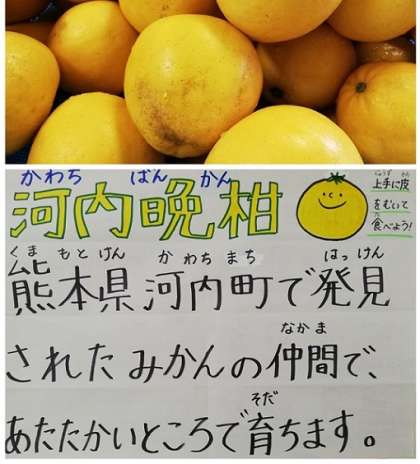 かわち ばん かん
河内晩柑
じょうず かわ
上手に皮
をむいて
た
食べよう!
くま もと けん か わち まち はっ けん
熊本県 河内町で発見
なかま
された みかんの 仲間で、
そだ
あたたかいところで育ちます。